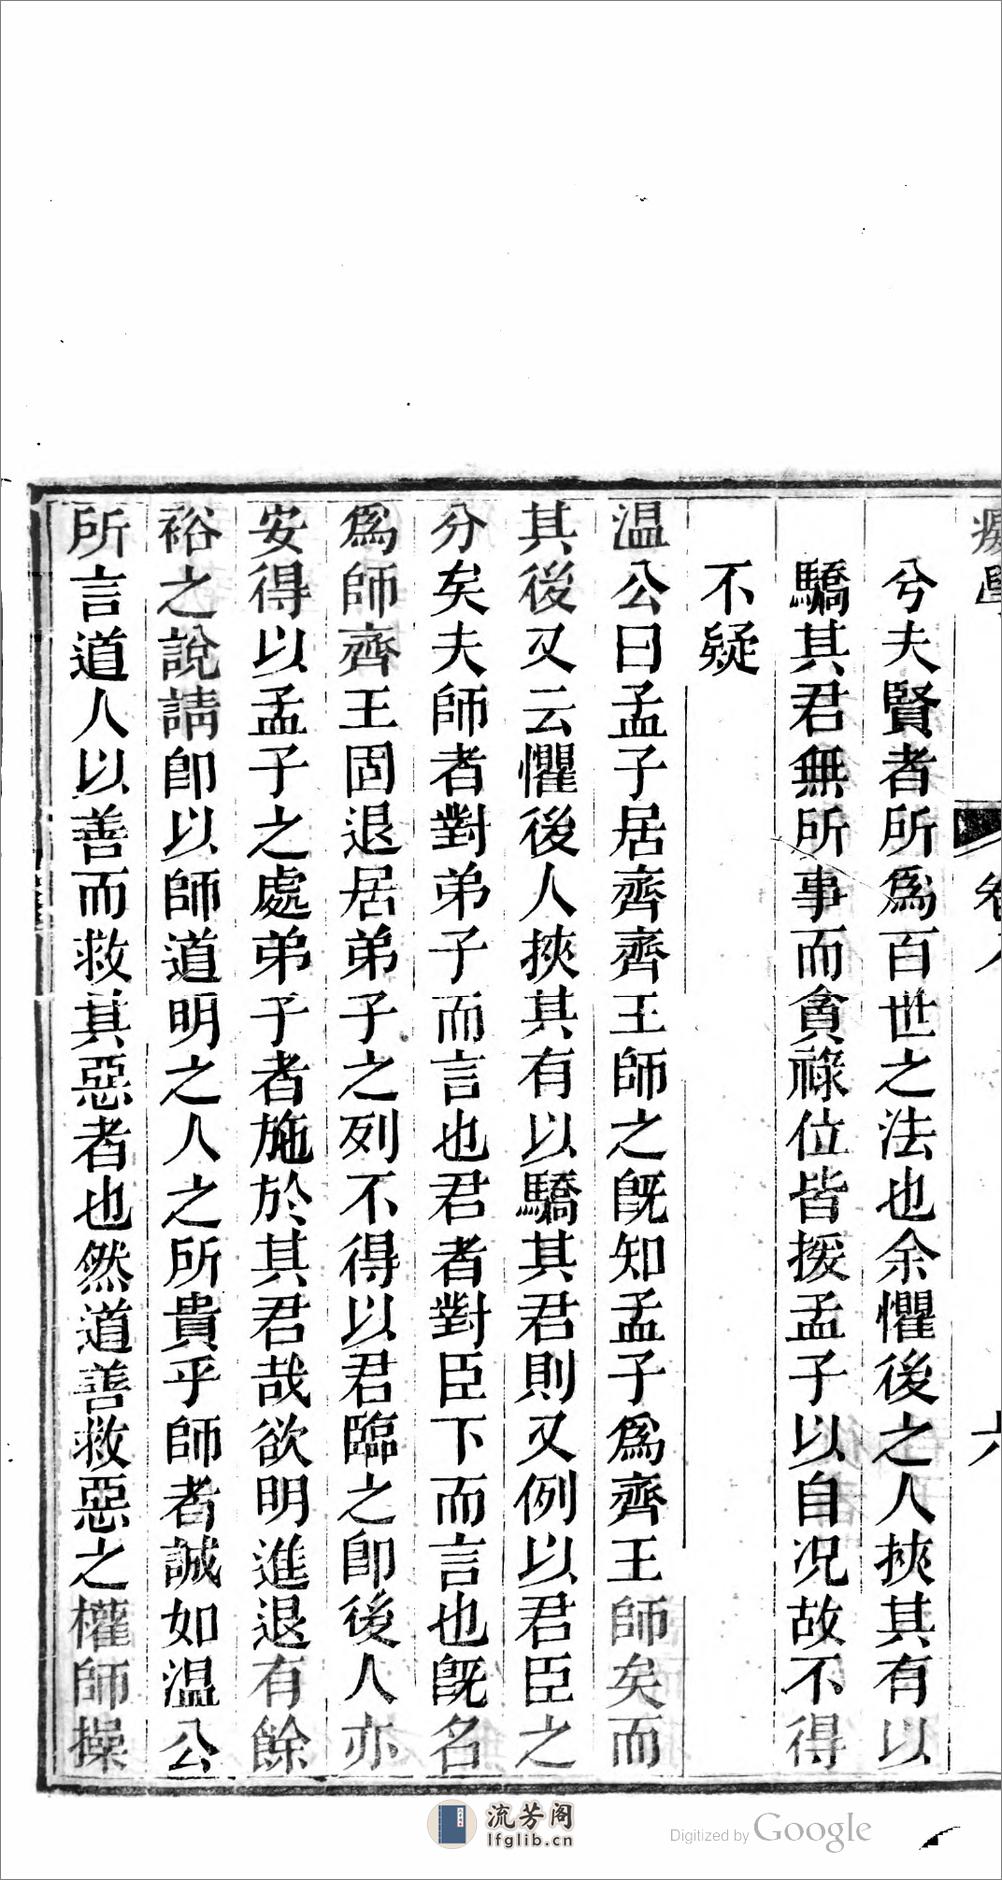 兮夫賢者所爲百世之法也余懼後之人挾其有以
驕其君無所事而貪祿位皆援孟子以自况故不得
不疑
温公曰孟子居齊齊王師之旣知孟子爲齊王師矣而
其後又云懼後人挾其有以驕其君則又例以君臣之
分矣夫師者對弟子而言也君者對臣下而言也旣名
爲師齊王固退居弟子之列不得以君臨之卽後人亦
安得以孟子之處弟子者施於其君哉欲明進退有餘
裕之說請卽以師道明之人之所貴乎師者誠如温公
所言道人以善而救其惡者也然道善救惡之權師操
流芳阁
lfglib.cn
Digitized by Google